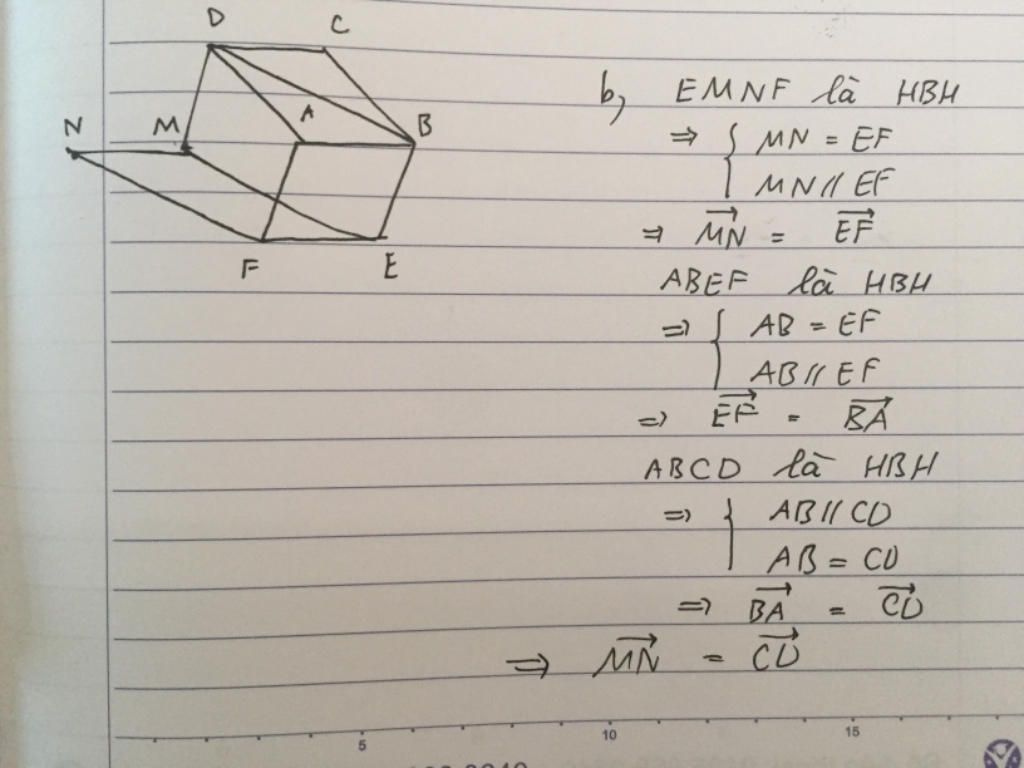 D C
N M A B
F E
b, EMNF là HBH
⇒ { MN = EF
MN // EF
⇒ \overrightarrow{MN} = \overrightarrow{EF}
ABEF là HBH
⇒ { AB = EF
AB // EF
⇒ \overrightarrow{EF} = \overrightarrow{BA}
ABCD là HBH
⇒ { AB // CD
AB = CD
⇒ \overrightarrow{BA} = \overrightarrow{CD}
⇒ \overrightarrow{MN} = \overrightarrow{CD}
5 10 15